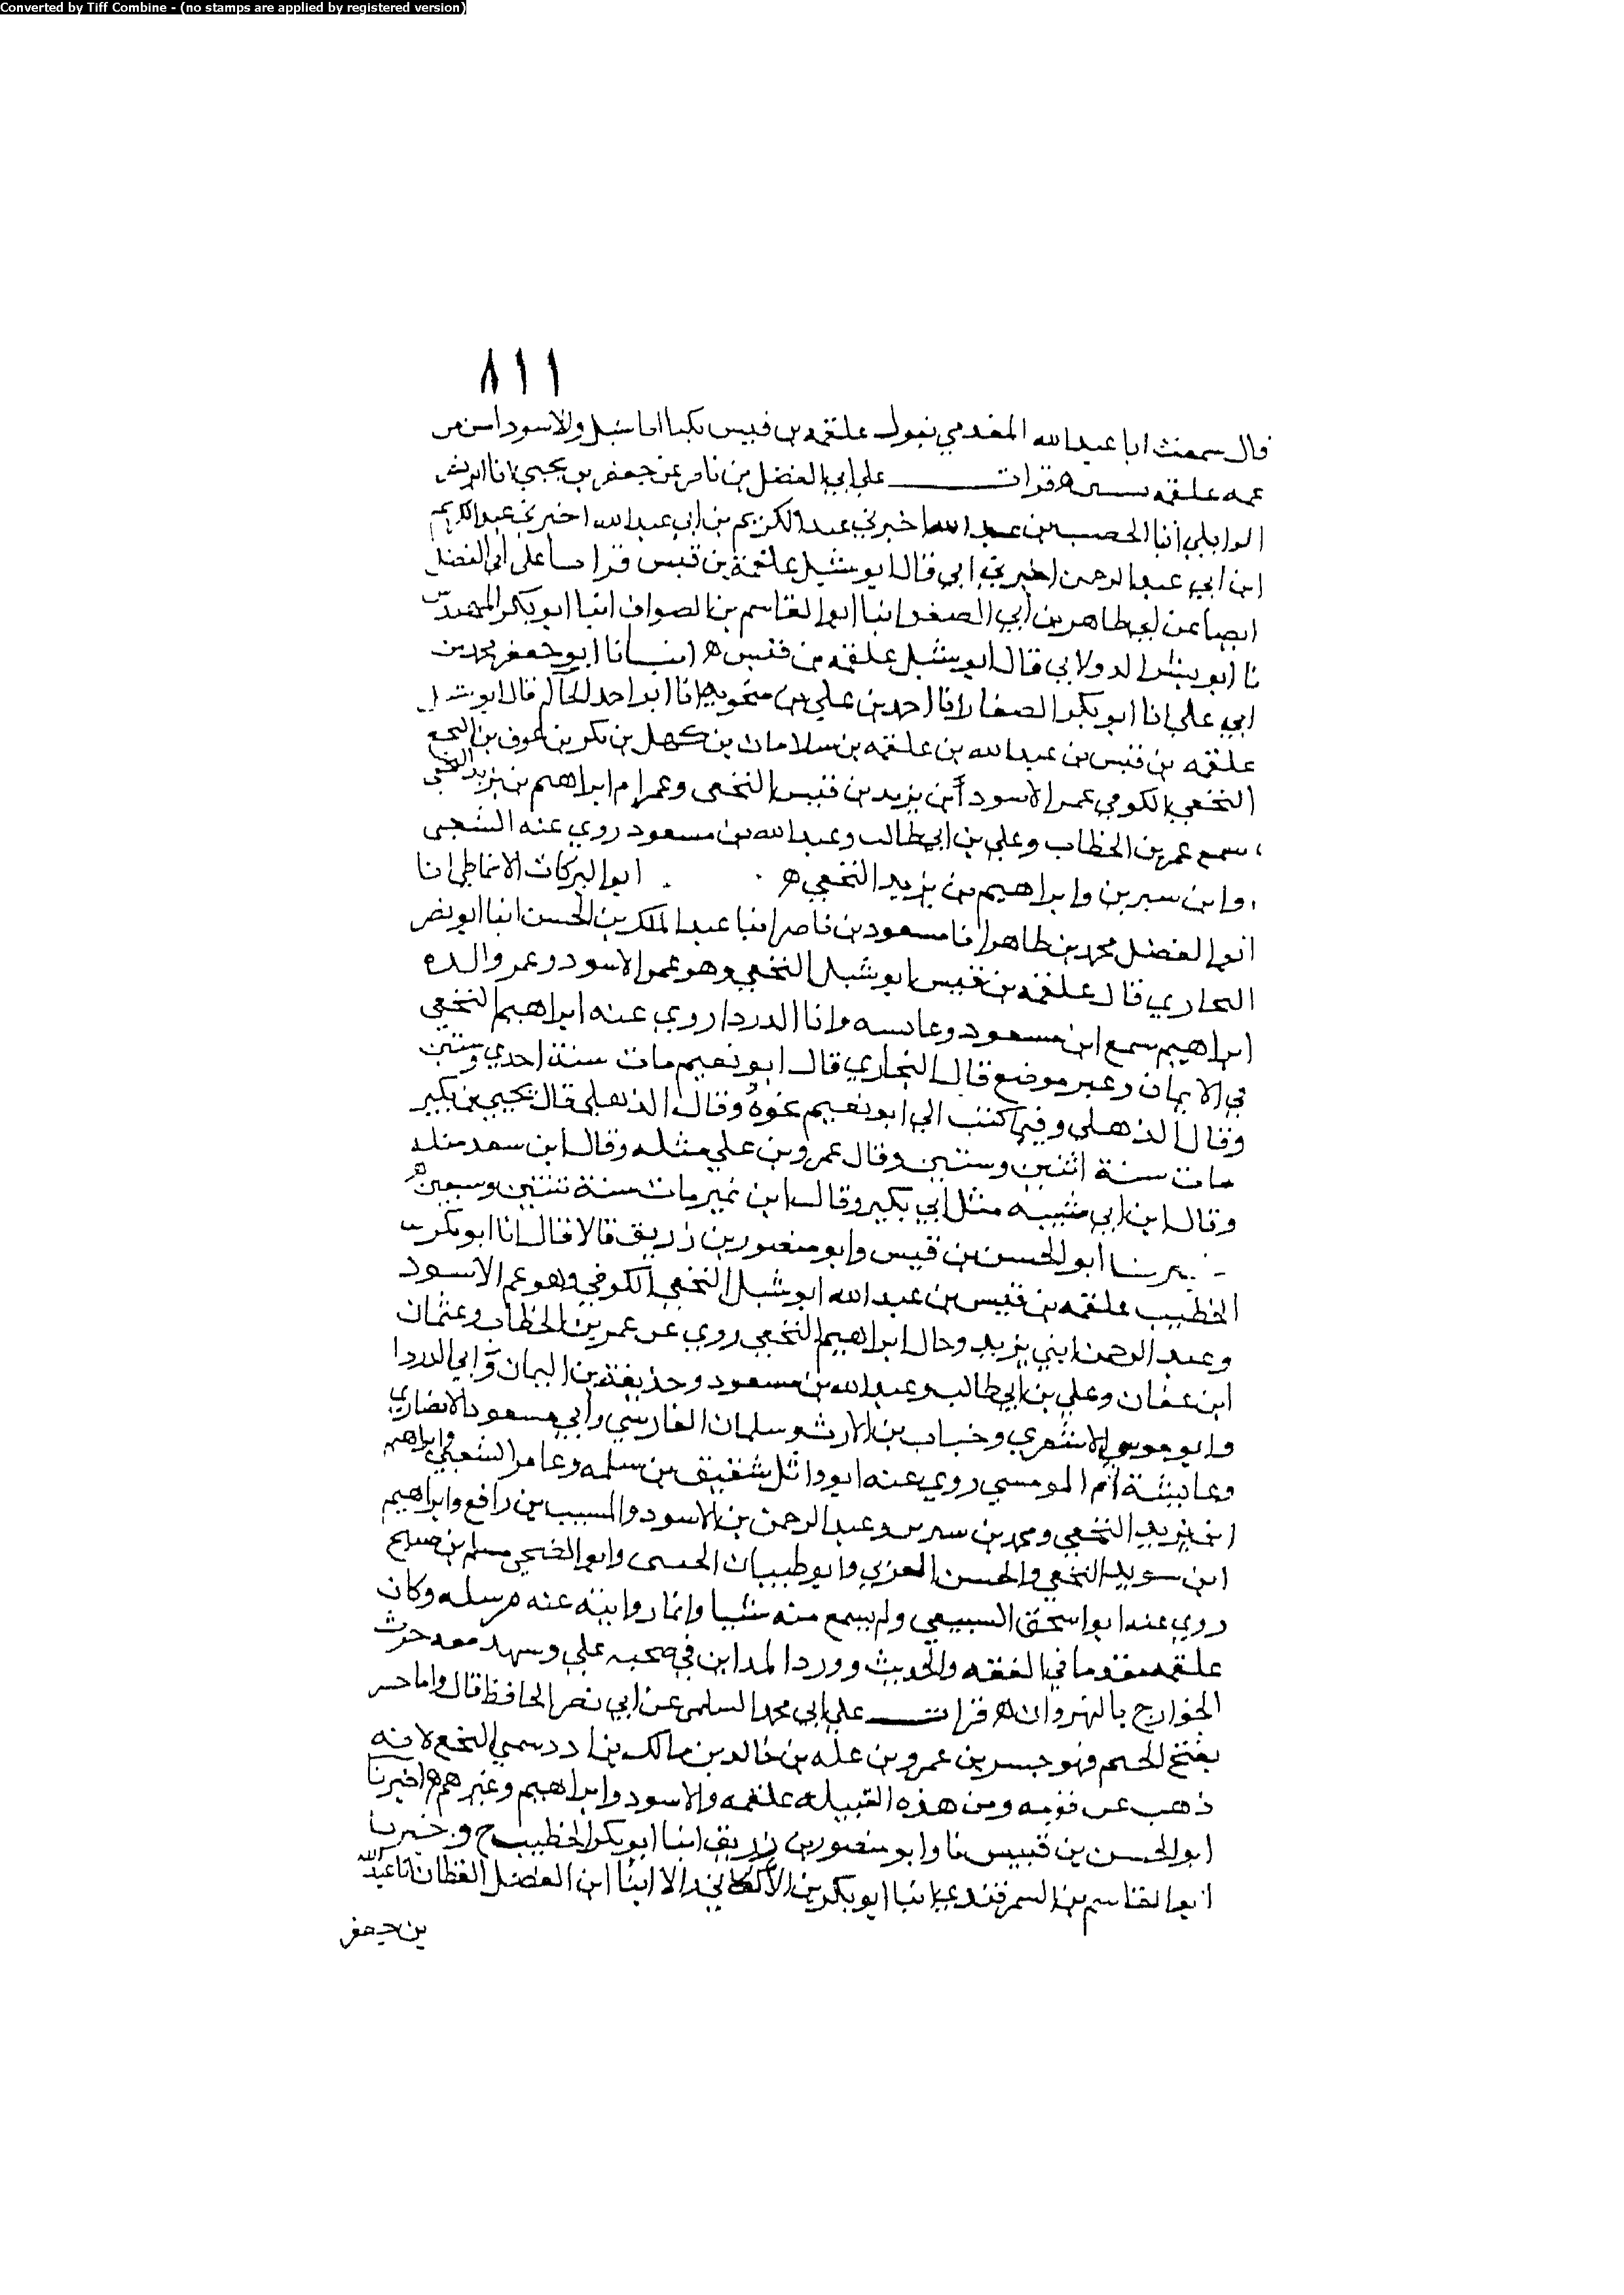 Converted by Tiff Combine - (no stamps are applied by registered version)
٨١١
قال سمعت ابا عبد الله المقدمي يقول علقمه بن قيس يكنا ابا شبل والاسود اسن من
عمه علقمه قرات علي ابي الفضل بن ناصر عن جعفر بن يحيي انا ابو نصر
الوايلي انبا الخصيب بن عبد الله اخبرني عبد الكريم بن ابي عبد الله اخبرني عبد الكريم
ابن ابي عبد الرحمن اخبرني ابي قال ابو شبل علقمة بن قيس قرانا على ابي الفضل
ايضا عن ابي طاهر بن أبي الصقر انبا ابو القاسم بن الصواف انبا ابو بكر المهندس
نا ابو بشر الدولابي قال ابو شبل علقمه بن قيس ه انبانا ابو جعفر محمد بن
ابي علي انا ابو بكر الصفار انا احمد بن علي بن منجويه انا ابو احمد الحاكم قال ابو شبل
علقمه بن قيس بن عبد الله بن علقمه بن سلامان بن كهل بن بكر بن عوف بن النخع
النخعي الكوفي عم الاسود أبن يزيد بن قيس النخعي وعم ام ابراهيم بن يزيد النخعي
سمع عمر بن الخطاب وعلي بن ابي طالب وعبد الله بن مسعود روي عنه الشعبي
وابن سيرين وابراهيم بن يزيد النخعي ه ابو البركات الانماطي انا
ابو الفضل محمد بن طاهر انا مسعود بن ناصر انبا عبد الملك بن الحسن انبا ابو نصر
البخاري قال علقمه بن قيس ابو شبل النخعي وهو عم الاسود وعم والده
ابراهيم سمع ابن مسعود وعايسه وابا الدردا روي عنه ابراهيم النخعي
في الايمان وغير موضع قال البخاري قال ابو نعيم مات سنة احدي وستين
وقال الذهلي وفيما كتب الي ابو نعيم نحوه وقال الذهلي قال يحيي بن بكير
مات سنة اثنين وستين وقال عمرو بن علي مثله وقال ابن سعد مثله
وقال ابن ابي شيبه مثل ابي بكير وقال ابن نمير مات سنة ثنتين وسبعين ه
ابو الحسن بن قيس وابو منصور بن زريق قالا قال انا ابو بكر
الخطيب علقمه بن قيس بن عبد الله ابو شبل النخعي الكوفي وهو عم الاسود
وعبد الرحمن ابني يزيد وخال ابراهيم النخعي روي عن عمر بن الخطاب وعثمان
ابن عفان وعلي بن ابي طالب وعبد الله بن مسعود وحذيفة بن اليمان وابي الدردا
وابو موسي الاشعري وخباب بن الارث وسلمان الفارسي وابي مسعود الانصاري
وعايشة أم المومنين روي عنه ابو وائل شقيق بن سلمه وعامر الشعبي وابراهيم
ابن يزيد النخعي ومحمد بن سيرين وعبد الرحمن بن الاسود والمسيب بن رافع وابراهيم
ابن سويد النخعي والحسن العرني وابو ظبيان الجنبي وابو الضحي مسلم بن صبيح
روي عنه ابو اسحق السبيعي ولم يسمع منه شيا وانما روايته عنه مرسله وكان
علقمه مقدما في الفقه والحديث وورد المداين في صحبه علي وشهد معه حرب
الخوارج بالنهروان ه قرات علي ابي محمد السلمي عن ابي نصر الحافظ قال واما جسر
بفتح الجيم فهو جسر بن عمرو بن عله بن خالد بن مالك بن ادد سمي النخع لانه
ذهب عن قومه ومن هذه القبيله علقمه والاسود وابراهيم وغيرهم ه اخبرنا
ابو الحسن بن قبيس نا وابو منصور بن زريق انبا ابو بكر الخطيب ح واخبرنا
ابو القاسم بن السمرقندي انبا ابو بكر بن اللالكائي قالا ابنا ابن الفضل القطان انا عبد الله
بن جعفر